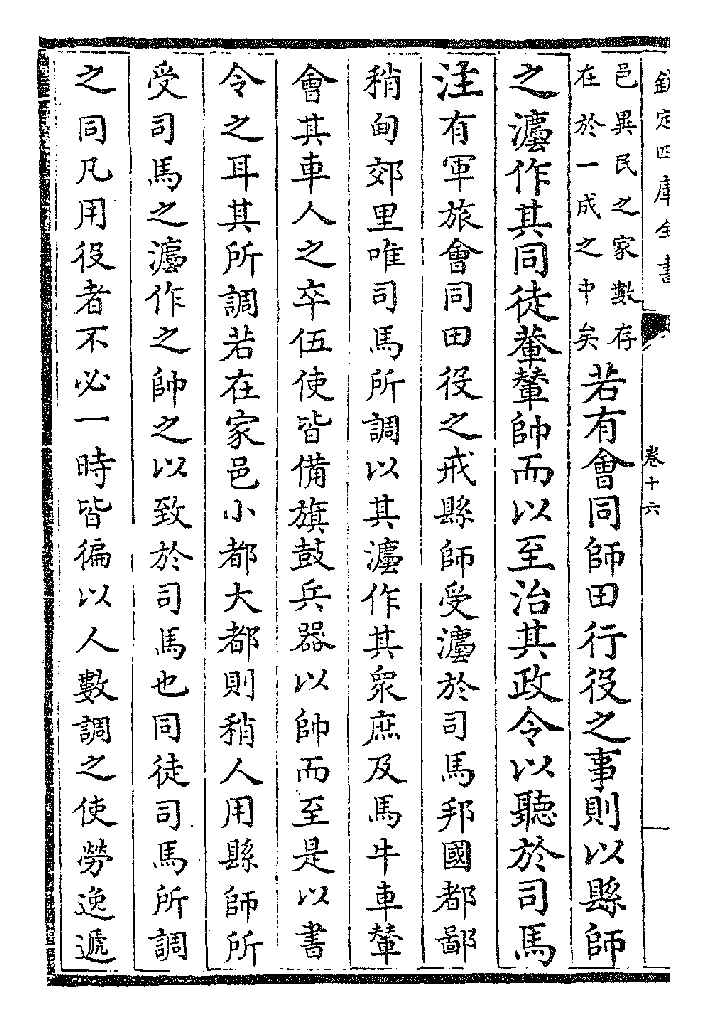 欽定四庫全書
卷十六
邑異民之家數存
在於一成之中矣
若有會同師田行役之事則以縣師
之灋作其同徒輂輦帥而以至治其政令以聽於司馬
注有軍旅會同田役之戒縣師受灋於司馬邦國都鄙
稍甸郊里唯司馬所調以其灋作其衆庶及馬牛車輦
會其車人之卒伍使皆備旗鼓兵器以帥而至是以書
令之耳其所調若在家邑小都大都則稍人用縣師所
受司馬之灋作之帥之以致於司馬也同徒司馬所調
之同凡用役者不必一時皆徧以人數調之使勞逸遞